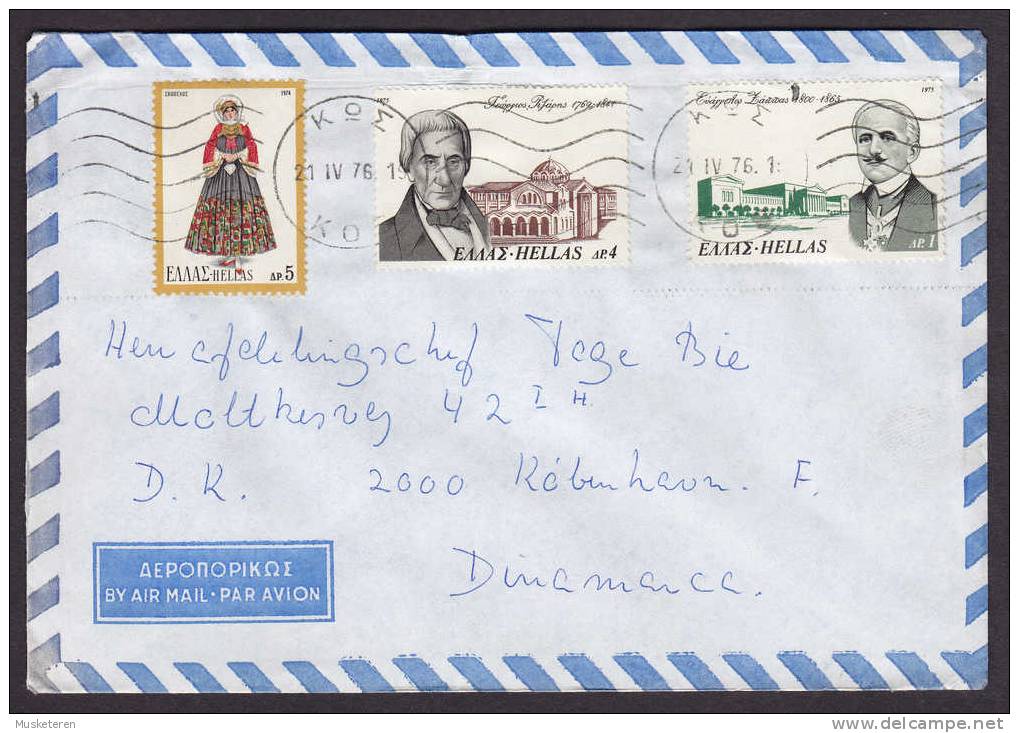 ΣΚΟΠΕΛΟΣ 1974
ΕΛΛΑΣ·HELLAS ΔΡ.5
1975 Γεώργιος Ριζάρης 1769-1841
ΕΛΛΑΣ·HELLAS ΔΡ.4
Εὐάγγελος Ζάππας 1800-1865 1975
ΔΡ.1
ΕΛΛΑΣ·HELLAS
ΚΩΣ
21 IV 76.
ΚΩΣ
21 IV 76.
Herr afdelingschef Tage Bie
Moltkesvej 42 I H.
D. K. 2000 København. F.
Dinamarca.
ΑΕΡΟΠΟΡΙΚΩΣ
BY AIR MAIL·PAR AVION
Musketeren
delcampe.net